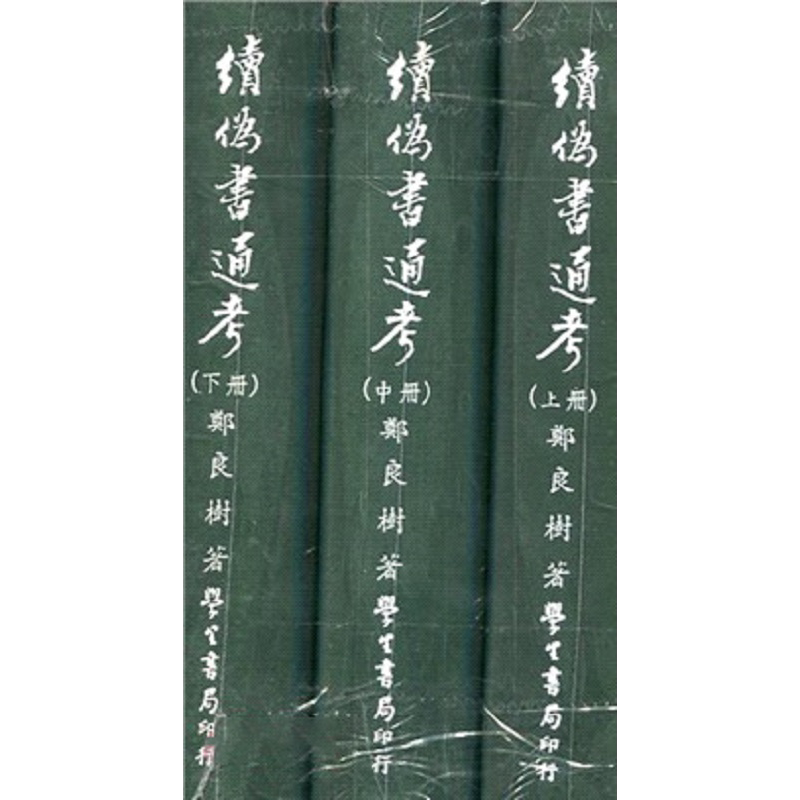 續偽書通考
(上冊)
鄭良樹著
學生書局印行
續偽書通考
(中冊)
鄭良樹著
學生書局印行
續偽書通考
(下冊)
鄭良樹著
學生書局印行